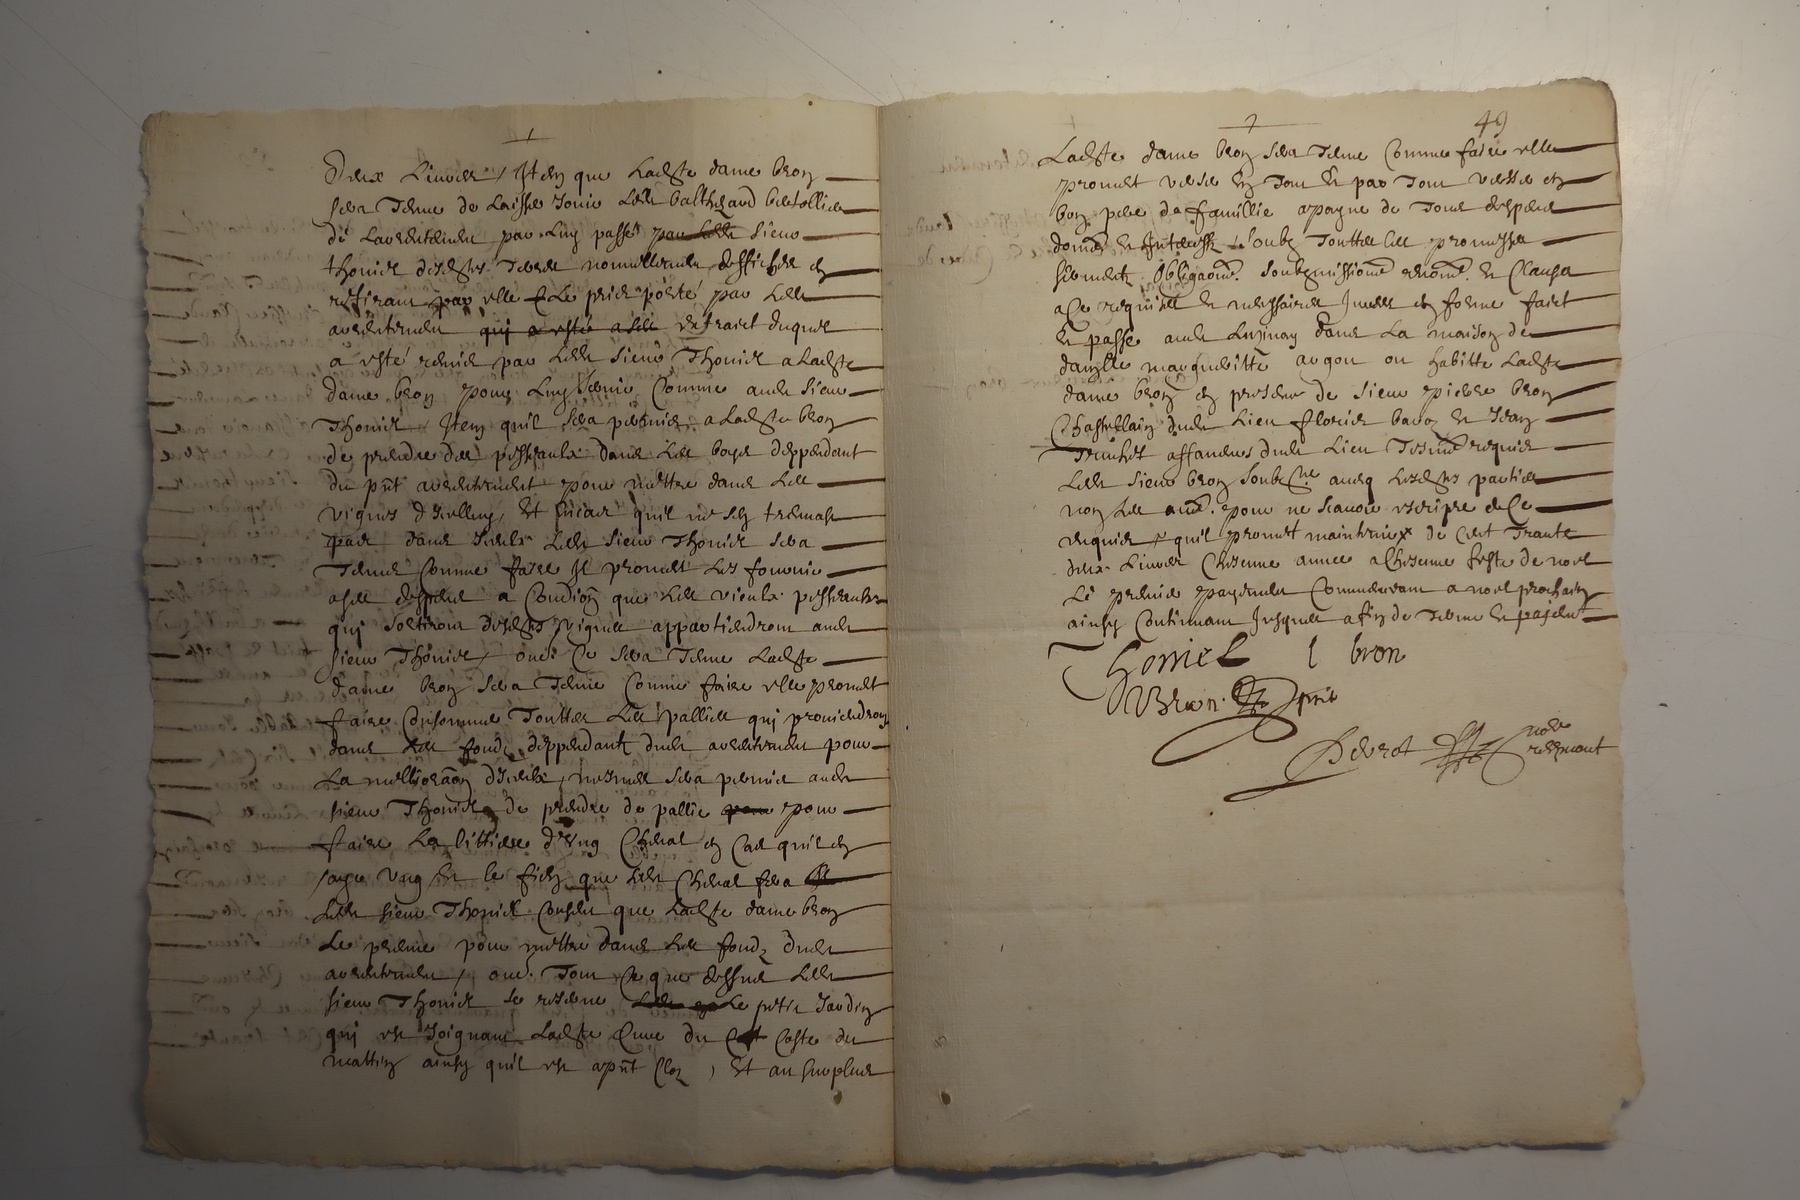 deux livres / Item que ladte dame bron
sera tenue de laisser jouir ledt balthezard bertollier
de larrentement par luy passé par ledt sieur
thonier desdtes terres nommement essiches en
retirant par elle le prix porté par ledt
arrentement qui a esté extraict duquel
a esté remis par ledt sieur Thonier a ladte
dame bron pour luy servir comme audt sieur
Thonier Item quil sera permis a ladte bron
de prendre des pesseaulx dans les boys deppendant
du pnt arrentement pour mettre dans les
vignes dicelluy, Et en cas quil ne sen treuvast
pas dans iceulx ledt sieur Thonier sera
Tenu comme faire Il promet les fournir
a ses despens a condion que les vieulx pesseaulx
qui sortiront desdtes vignes appartiendront audt
sieur Thonier / oultre ce sera Tenue ladte
dame bron sera tenue comme faire elle promet
faire consommer Touttes les pallies qui proviendront
dans les fondz deppendantz dudt arrentement pour
La mellioraon diceulx, mesmes sera permis audt
sieur Thonier de prendre de pallie pour
faire la littiere dung Cheval en cas quil en
aye ung Et le fien que ledt cheval fera
ledt sieur Thonier consent que ladte dame bron
Le prenne pour mettre dans les fondz dudt
arrentement / oultre Tout ce que dessus ledt
sieur Thonier se reserve le petit Jardin
qui est Joignant ladte du Coste du
mattin ainsy quil est a pnt Cloz, Et au surplus
49
Ladte dame bron sera Tenue Comme faire elle
promet user en Tout et par Tout user en
bon pere de famillie a payne de Tous despens
domes et Interestz soubz Touttes les promesses
sermentz obligaons soubzmissions renons et clauses
a ce requises et necessaires Juree en forme faict
et passe audt dans La maison de
damlle margueritte argou ou habitte ladte
dame bron en presence de sieur pierre bron
Chastellain dudt Lieu florier et Jean
affaneurs dudt Lieu Tesmoings requis
ledt sieur bron soubzne avecq lesdtes parties
non les aues pour ne scavoir escripre de ce
requis / quil promet maintenir de cent Trante
deux livres Chascune annee a chascune feste de noel
le premier payement commencant a noel prochain
ainsy Continuant Jusques a fin de Terme et payement
Thoniel l bron
Bron pnt
nore